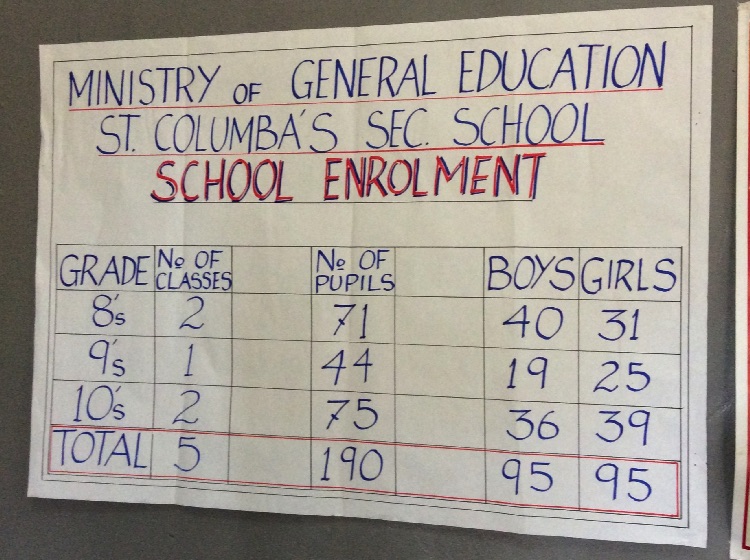 MINISTRY OF GENERAL EDUCATION
ST. COLUMBA'S SEC. SCHOOL
SCHOOL ENROLMENT
GRADE No OF CLASSES No OF PUPILS BOYS GIRLS
8's 2 71 40 31
9's 1 44 19 25
10's 2 75 36 39
TOTAL 5 190 95 95